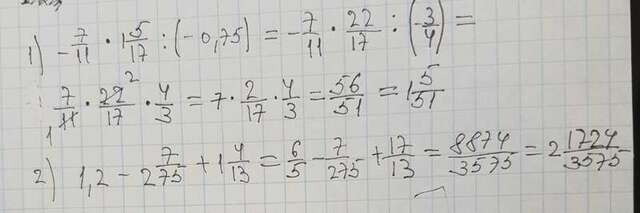 1) -7/11 · 1 5/17 : (-0,75) = -7/11 · 22/17 : (-3/4) =
7/11 · 22/17 · 4/3 = 7 · 2/17 · 4/3 = 56/51 = 1 5/51
2) 1,2 - 2 7/75 + 1 4/13 = 6/5 - 7/275 + 17/13 = 8874/3575 = 2 1724/3575